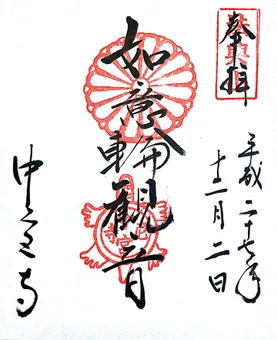 奉拝
平成二十七年
十二月二日
如意輪観音
中宮寺